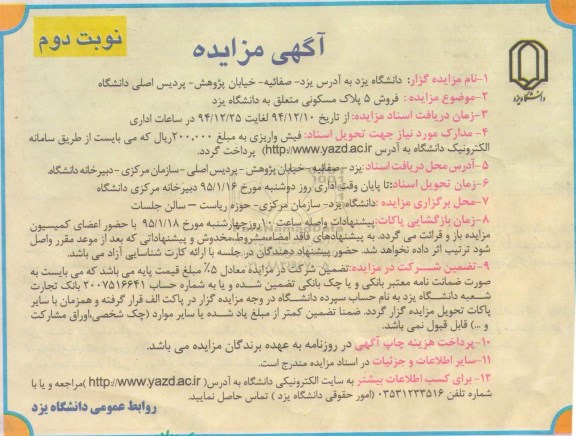 نوبت دوم
آگهی مزایده
دانشگاه یزد
۱-نام مزایده گزار: دانشگاه یزد به آدرس یزد- صفائیه- خیابان پژوهش- پردیس اصلی دانشگاه
۲-موضوع مزایده : فروش ۵ پلاک مسکونی متعلق به دانشگاه یزد
۳-زمان دریافت اسناد مزایده: از تاریخ ۹۴/۱۲/۱۰ لغایت ۹۴/۱۲/۲۵ در ساعات اداری
۴- مدارک مورد نیاز جهت تحویل اسناد: فیش واریزی به مبلغ ۲۰۰,۰۰۰ریال که می بایست از طریق سامانه
الکترونیک دانشگاه به آدرس http://www.yazd.ac.ir) پرداخت گردد.
۵-آدرس محل دریافت اسناد:یزد - صفائیه- خیابان پژوهش -پردیس اصلی -سازمان مرکزی -دبیرخانه دانشگاه.
۶-زمان تحویل اسناد:تا پایان وقت اداری روز دوشنبه مورخ ۹۵/۱/۱۶ دبیرخانه مرکزی دانشگاه
۷-محل برگزاری مزایده :دانشگاه یزد- سازمان مرکزی- حوزه ریاست – سالن جلسات
۸-زمان بازگشایی پاکات:پیشنهادات واصله ساعت ۱۰ روز چهارشنبه مورخ ۹۵/۱/۱۸ با حضور اعضای کمیسیون
مزایده باز و قرائت می گردد. به پیشنهادهای فاقد امضاء،مشروط،مخدوش و پیشنهاداتی که بعد از موعد مقرر واصل
شود ترتیب اثر داده نخواهد شد. حضور پیشنهاد دهندگان در جلسه با ارائه کارت شناسایی آزاد می باشد.
۹-تضمین شرکت در مزایده:تضمین شرکت در مزایده معادل ۵٪ مبلغ قیمت پایه می باشد که می بایست به
صورت ضمانت نامه معتبر بانکی و یا چک بانکی تضمین شده و یا به شماره حساب ۲۰۰۷۵۱۶۶۴۱ بانک تجارت
شعبه دانشگاه یزد به نام حساب سپرده دانشگاه در وجه مزایده گزار در پاکت الف قرار گرفته و همزمان با سایر
پاکات تحویل مزایده گزار گردد. ضمنا تضمین کمتر از مبلغ یاد شده یا سایر موارد (چک شخصی،اوراق مشارکت
و ...) قابل قبول نمی باشد.
۱۰-پرداخت هزینه چاپ آگهی در روزنامه به عهده برندگان مزایده می باشد.
۱۱-سایر اطلاعات و جزئیات در اسناد مزایده مندرج است.
۱۲- برای کسب اطلاعات بیشتر به سایت الکترونیکی دانشگاه به آدرس( http://www.yazd.ac.ir )مراجعه و یا با
شماره تلفن ۰۳۵۳۱۲۳۳۵۱۶ (امور حقوقی دانشگاه یزد ) تماس حاصل نمایید.
روابط عمومی دانشگاه یزد